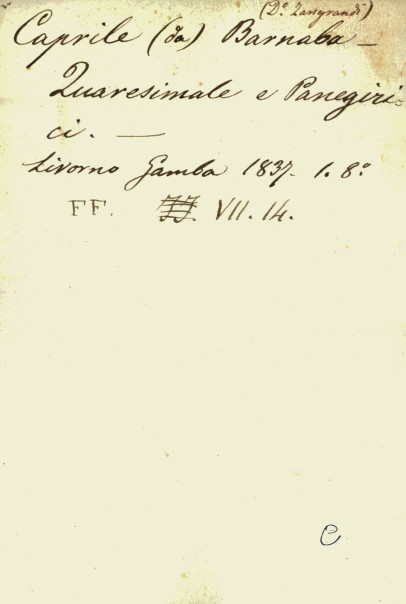 (D.º Zangrandi)
Caprile (da) Barnaba —
Quaresimale e Panegiri-
ci. —
Livorno Gamba 1837. 1. 8.º
FF. VII. 14.
C